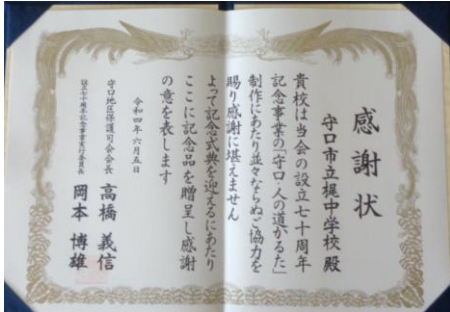 感謝状
守口市立梶中学校 殿
貴校は当会の設立七十周年
記念事業の「守口・人の道かるた」
制作にあたり並々ならぬご協力を
賜り感謝に堪えません
よって記念式典を迎えるにあたり
ここに記念品を贈呈し感謝
の意を表します
令和四年六月五日
守口地区保護司会会長 高橋 義信
設立七十周年記念事業実行委員長 岡本 博雄